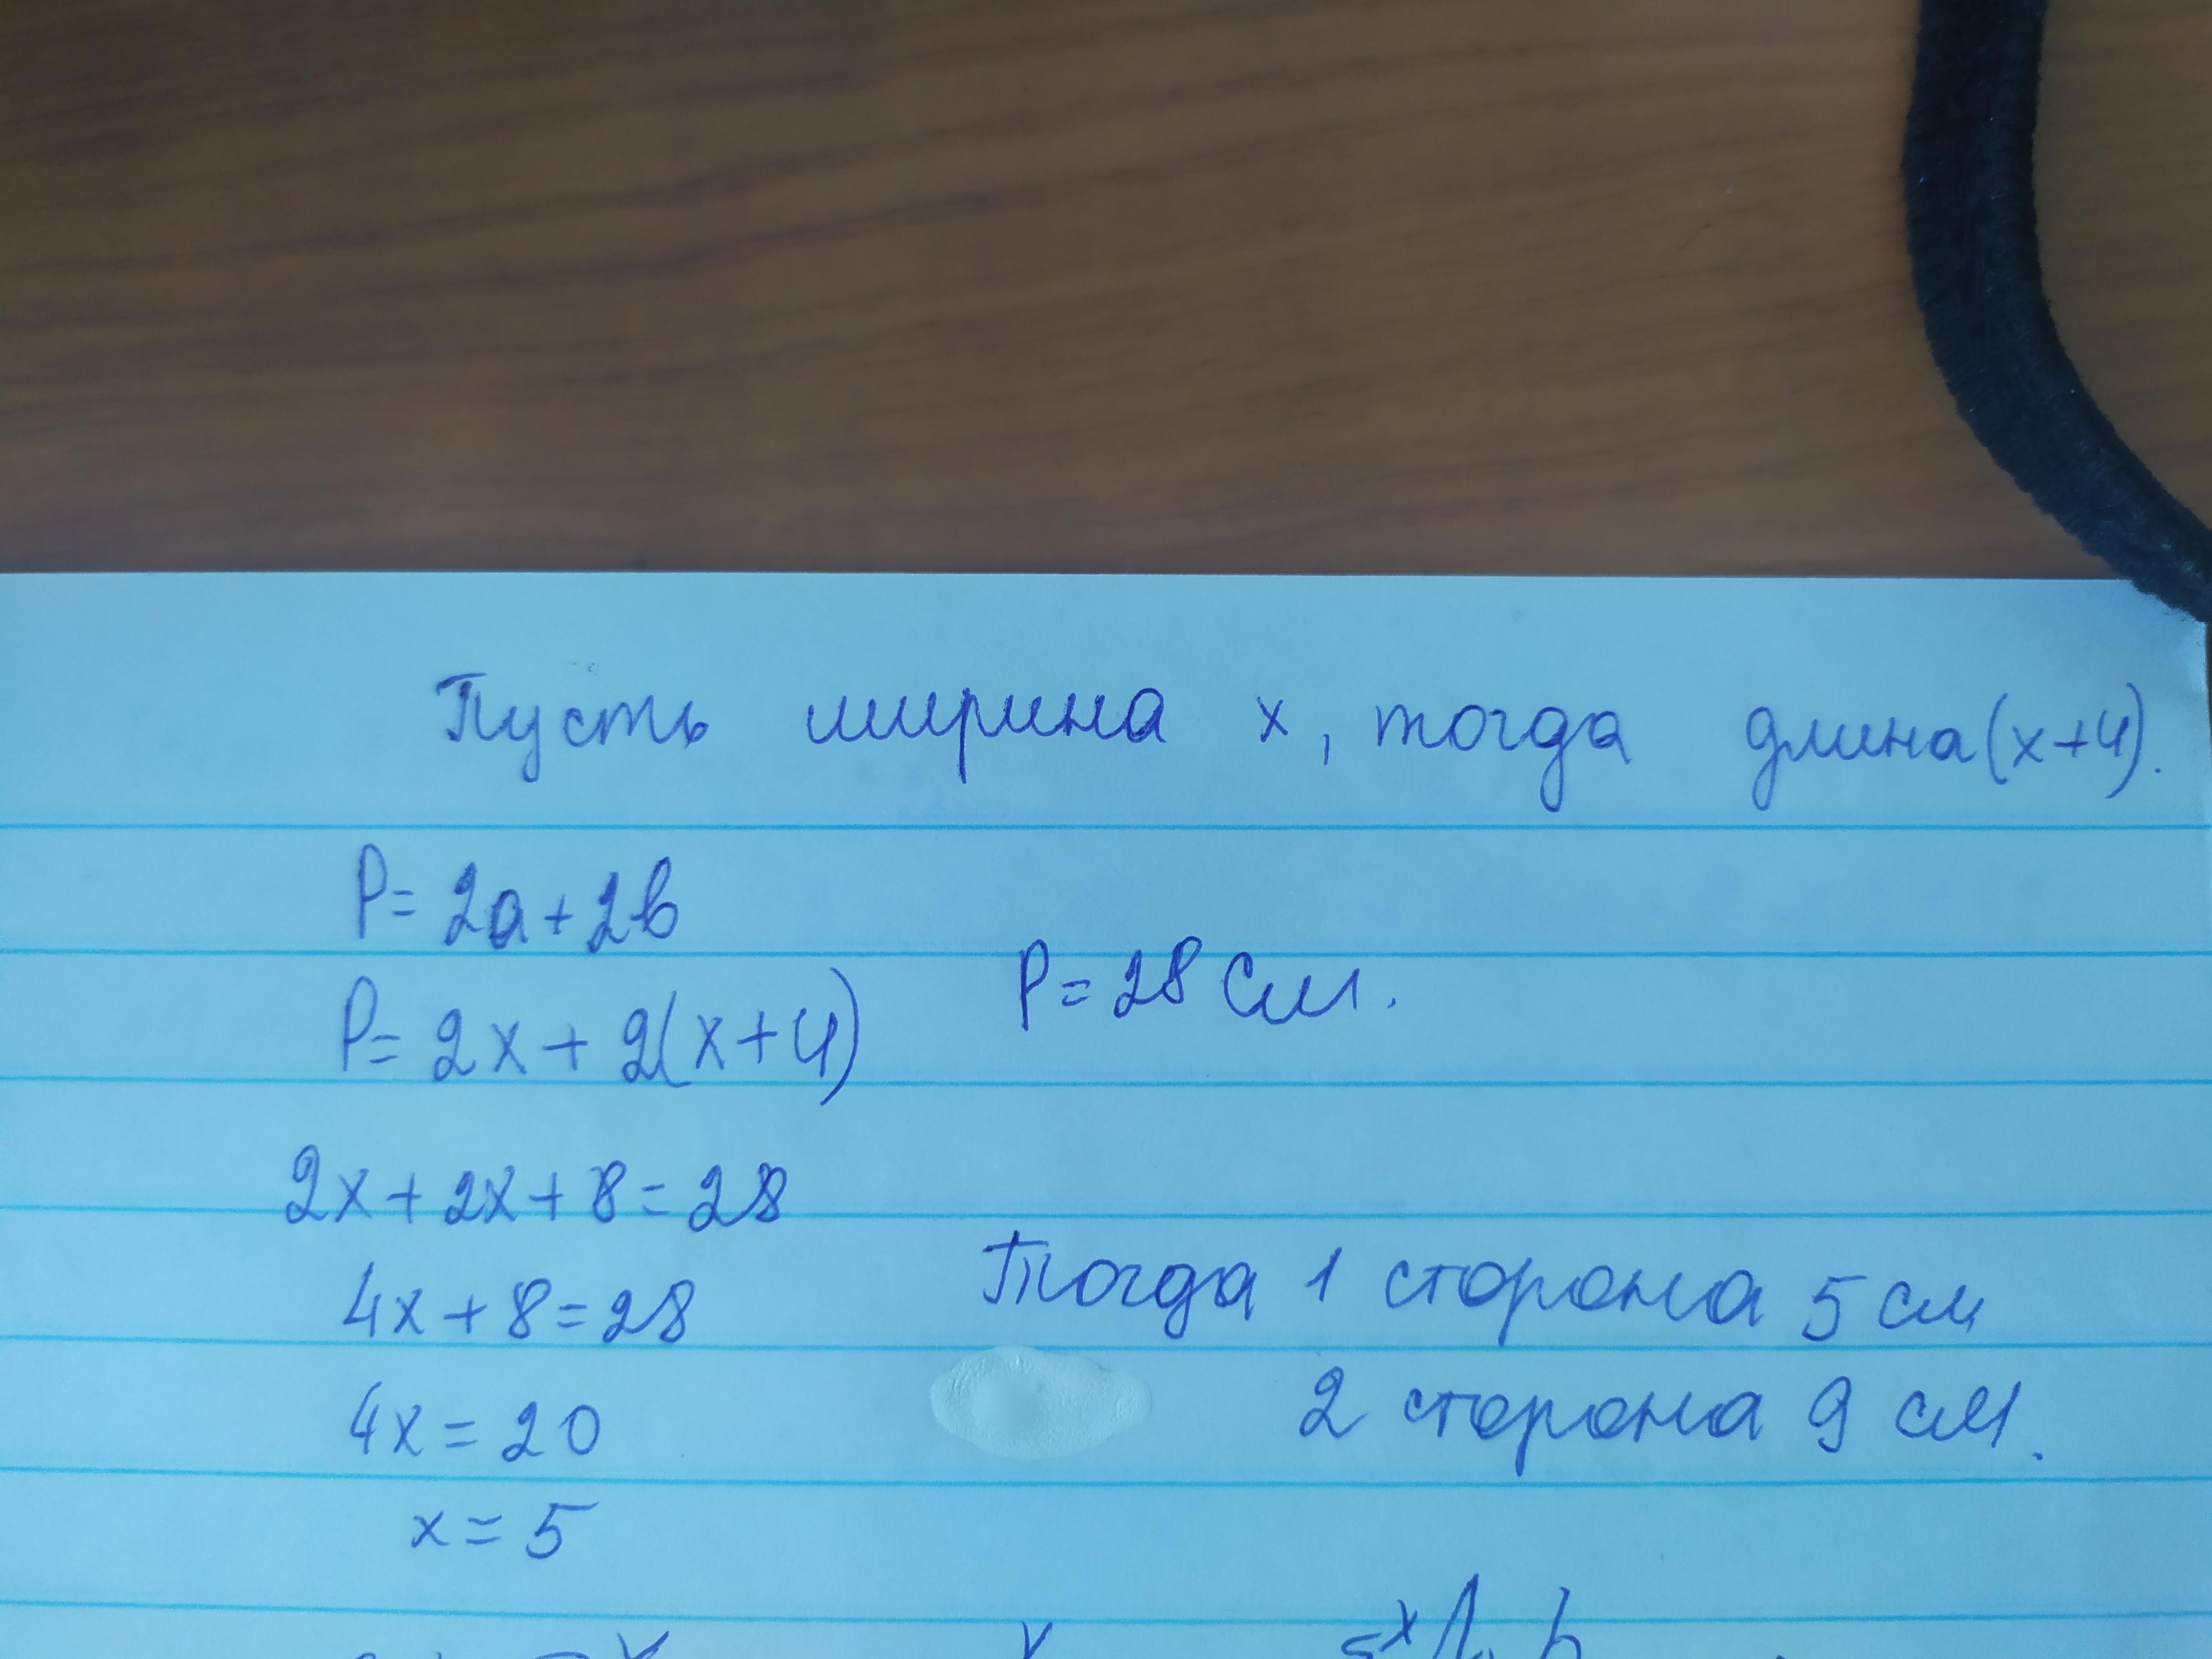 Пусть ширина x, тогда длина (x+4).
P= 2a+2b
P= 2x+2(x+4)
P=28 см.
2x+2x+8=28
4x+8=28
4x=20
x=5
Тогда 1 сторона 5 см
2 сторона 9 см.